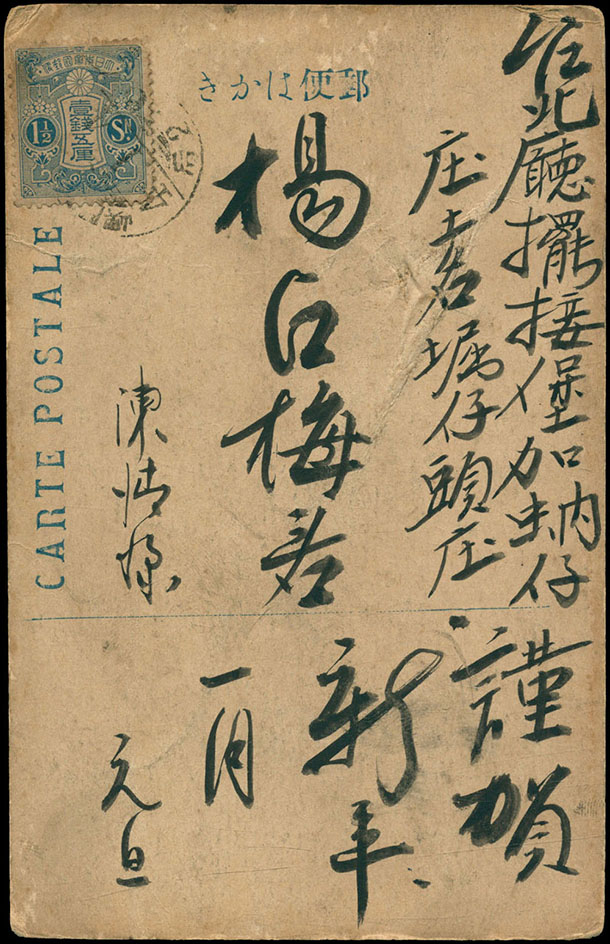 郵便はかき
大日本帝國郵便
壹錢五厘
1½ Sn.
CARTE POSTALE
台北廳擺接堡加蚋仔
庄土名堀仔頭庄
楊江梅君
陳
謹賀
新年
一月
元旦